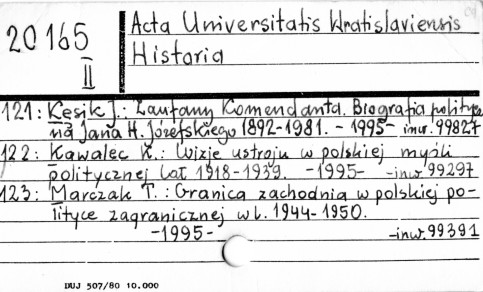 20165
II
Acta Universitatis Wratislaviensis
Historia
121: Kęsik J.: Zaufany Komendanta. Biografia politycz
na Jana H. Józefskiego 1892-1981. - 1995- inw. 99827
122: Kawalec K.: Wizje ustroju w polskiej myśli
politycznej lat 1918-1939. -1995- -inw. 99297
123: Marczak T.: Granica zachodnia w polskiej po-
lityce zagranicznej w l. 1944-1950.
-1995- -inw. 99391
DUJ 507/80 10.000